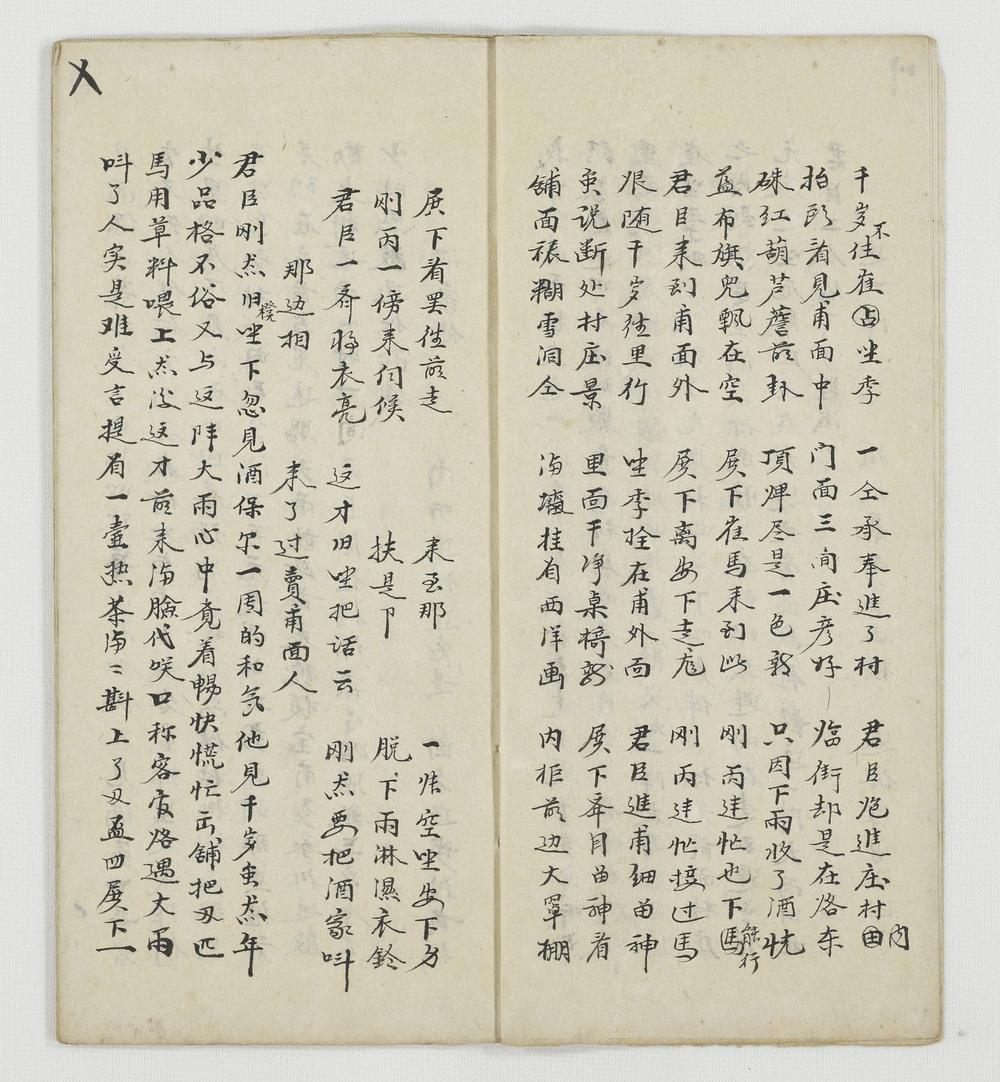 千岁不住崔占坐季 一仝承奉進了村 君臣炮進庄村田内
抬頭看見甫面中 门面三间庄彦好 临街却是在路东
硃红葫芦蘑前卦 頂焊尽是一色新 只因下雨收了酒恍
蓝布旗児飘在空 殿下崔馬来到此 刚丙連忙也下馬能行
君臣来到甫面外 殿下离安下走 刚丙連忙接过馬
恨随千岁徃里行 坐季拴在甫外面 君臣進甫细由神
赤说断处村庄景 里面干净桌椅新 殿下奔目由神看
舖面裱糊雪洞仝 海墁挂有西洋画 内柜前边大罩棚
殿下看罢徃前走 来至那 一张空坐安下身
刚丙一傍来伺候 扶是下 脱下雨淋濕衣鈴
君臣一齐将衣亮 这才旧坐把话云 刚杰要把酒家叫
那边相 来了过賣甫面人
君臣刚杰旧橙坐下忽見酒保尔一周的和気他見千岁虫杰年
少品格不俗又与这阵大雨心中竟着暢快慌忙出舖把刄匹
馬用草料喂上杰後这才前来满臉代咲口称客官路遇大雨
叫了人实是难受言提有一壹热茶满々斟上了刄盃四殿下一